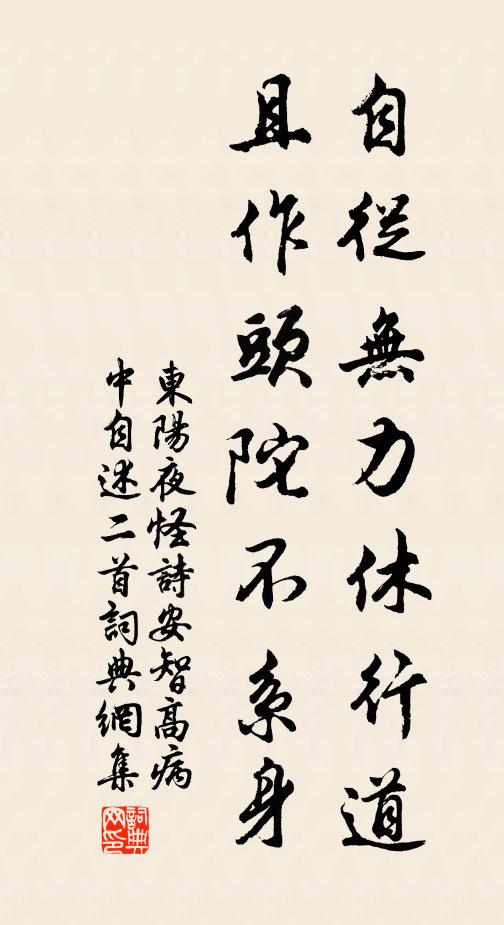 自從無力休行道
且作頭陀不系身
東陽夜怪詩安智高病
中自述二首詞典網集
詞典网印